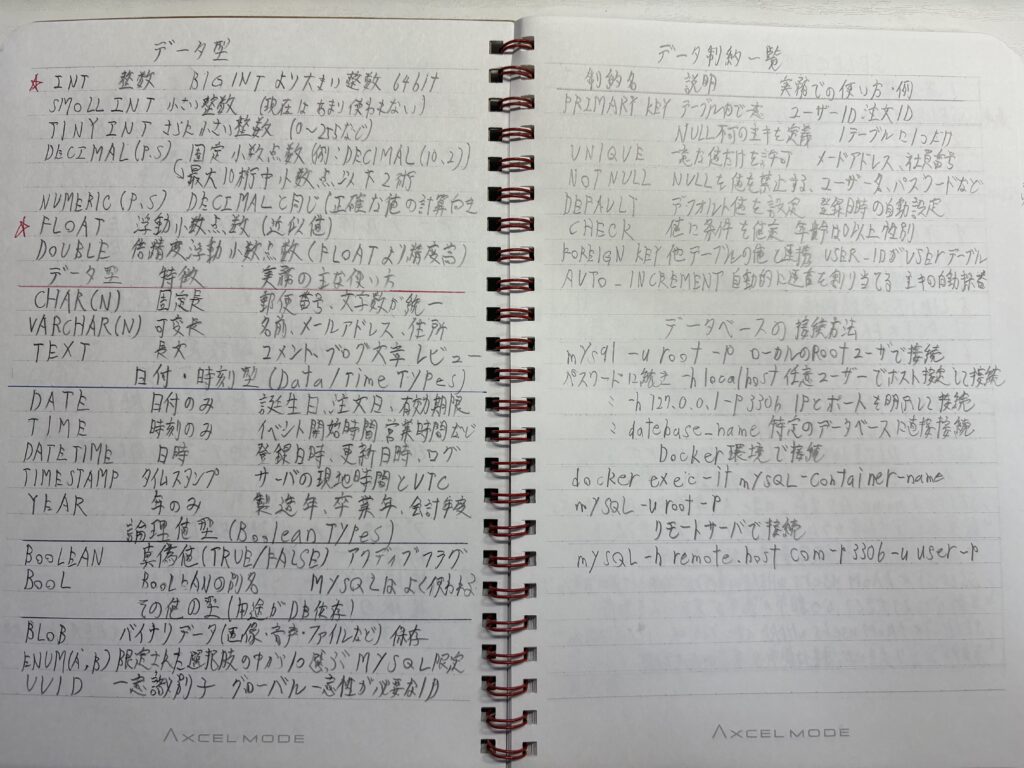 データ型
☆ INT 整数 BIGINT より大きい整数 64bit
SMOLLINT 小さい整数 (現在はあまり使われない)
TINYINT さらに小さい整数 (0~255など)
DECIMAL(P.S) 固定小数点数(例:DECIMAL(10,2))
最大10桁中小数点以下2桁
NUMERIC(P,S) DECIMALと同じ(正確な値の計算向き
☆ FLOAT 浮動小数点数 (近似値)
DOUBLE 倍精度浮動小数点数(FLOATより精度高)
データ型 特徴 実務の主な使い方
CHAR(N) 固定長 郵便番号、文字数が統一
VARCHAR(N) 可変長 名前、メールアドレス、住所
TEXT 長文 コメント、ブログ文章 レビュー
日付・時刻型(Data/Time Types)
DATE 日付のみ 誕生日、注文日、有効期限
TIME 時刻のみ イベント開始時間 営業時間など
DATETIME 日時 登録日時、更新日時、ログ
TIMESTAMP タイムスタンプ サーバの現地時間とUTC
YEAR 年のみ 製造年、卒業年、会計年度
論理値型(Boolean Types)
BOOLEAN 真偽値(TRUE/FALSE) アクティブフラグ
BOOL BOOLEANの別名 MYSQLはよく使われる
その他の型(用途がDB依存)
BLOB バイナリデータ(画像・音声・ファイルなど) 保存
ENUM(A,B) 限定された選択肢の中から1つ選ぶ MYSQL限定
UUID 一意識別子 グローバル一意性が必要なID
AXCELMODE
データ制約一覧
制約名 説明 実務での使い方・例
PRIMARY KEY テーブル内で一意 ユーザーID、注文ID
NULL不可の主キーを定義 1テーブルに1つだけ
UNIQUE 一意な値だけを許可 メールアドレス、社員番号
NOT NULL NULLを値を禁止する、ユーザー名、パスワードなど
DEFAULT デフォルト値を設定 登録日時の自動設定
CHECK 値に条件を 年齢は0以上 性別
FOREIGN KEY 他テーブルの値と連携 USER_IDがUSERテーブル
AUTO_INCREMENT 自動的に連番を割り当てる 主キーの自動採番
データベースの接続方法
mysql -u root -p ローカルのRootユーザで接続
パスワードに続き -h localhost 任意ユーザーでホスト指定して接続
〃 -h 127.0.0.1 -P 3306 IPとポートを明示して接続
〃 datebase_name 特定のデータベースに直接接続
Docker環境で接続
docker exec -it mySQL-container-name
mySQL -u root -P
リモートサーバで接続
mySQL -h remote.host com -p 3306 -u user -p
AXCELMODE